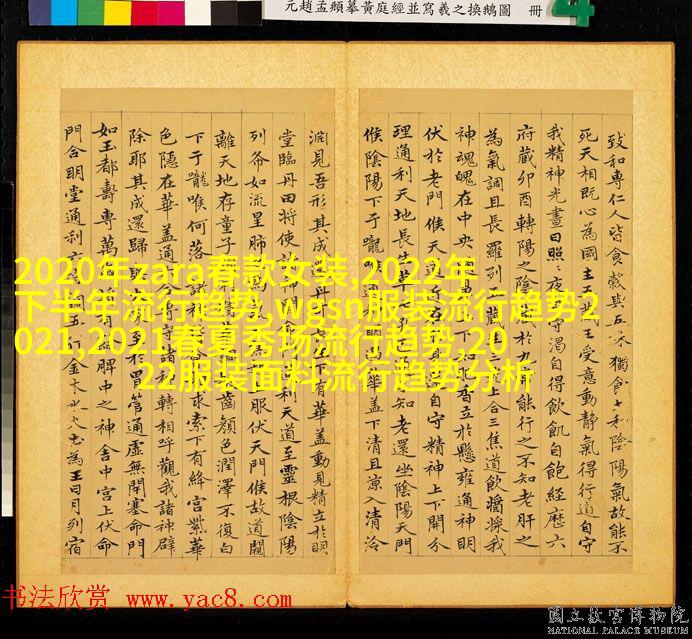 元趙孟頫摹黃庭經並寫羲之換鵝圖 冊
致和専仁人皆食穀與五味獨食太和陰陽氣故能不
死天相既心為國主五藏王受意動靜氣得行道自守
我精神光晝日照〻夜守渴自得飲飢自飽經歷六
府藏卯酉轉陽之陰藏於九能行之不知老肝之
為氣調且長羅列五藏生三光上合三焦道飲醬漿我
神魂魄在中央下知香立於懸雍通神明
伏於老門候天道近在身自守精神上下開分
理通利天地長生草知老還坐陰陽天門
候陰陽下于嚨過華蓋下清且涼入清泠
淵見吾形其成還丹生下有華蓋動見精立於明
堂臨丹田將使命門通利天道至靈根陰陽
列布如流星肺之服伏天門候故道闚
離天地存童子齒顏色潤澤不復白
下于嚨喉何落諸神求索下有絳宮紫華
色隱在華蓋通六合専守諸神轉相呼觀我諸神辟
除耶其成還歸至於胃管通虛無閉塞命門
如玉都壽専萬歲有餘脾中之神舍中宮上伏命
門合明堂通利六府五行金木水火土為王日月列宿
2020年zara春款女装,2022年
下半年流行趋势,wgsn服装流行趋势2
021,2021春夏秀场流行趋势,20
22服装面料流行趋势分析
书法欣赏 www.yac8.com
國立故宮博物院
NATIONAL PALACE MUSEUM